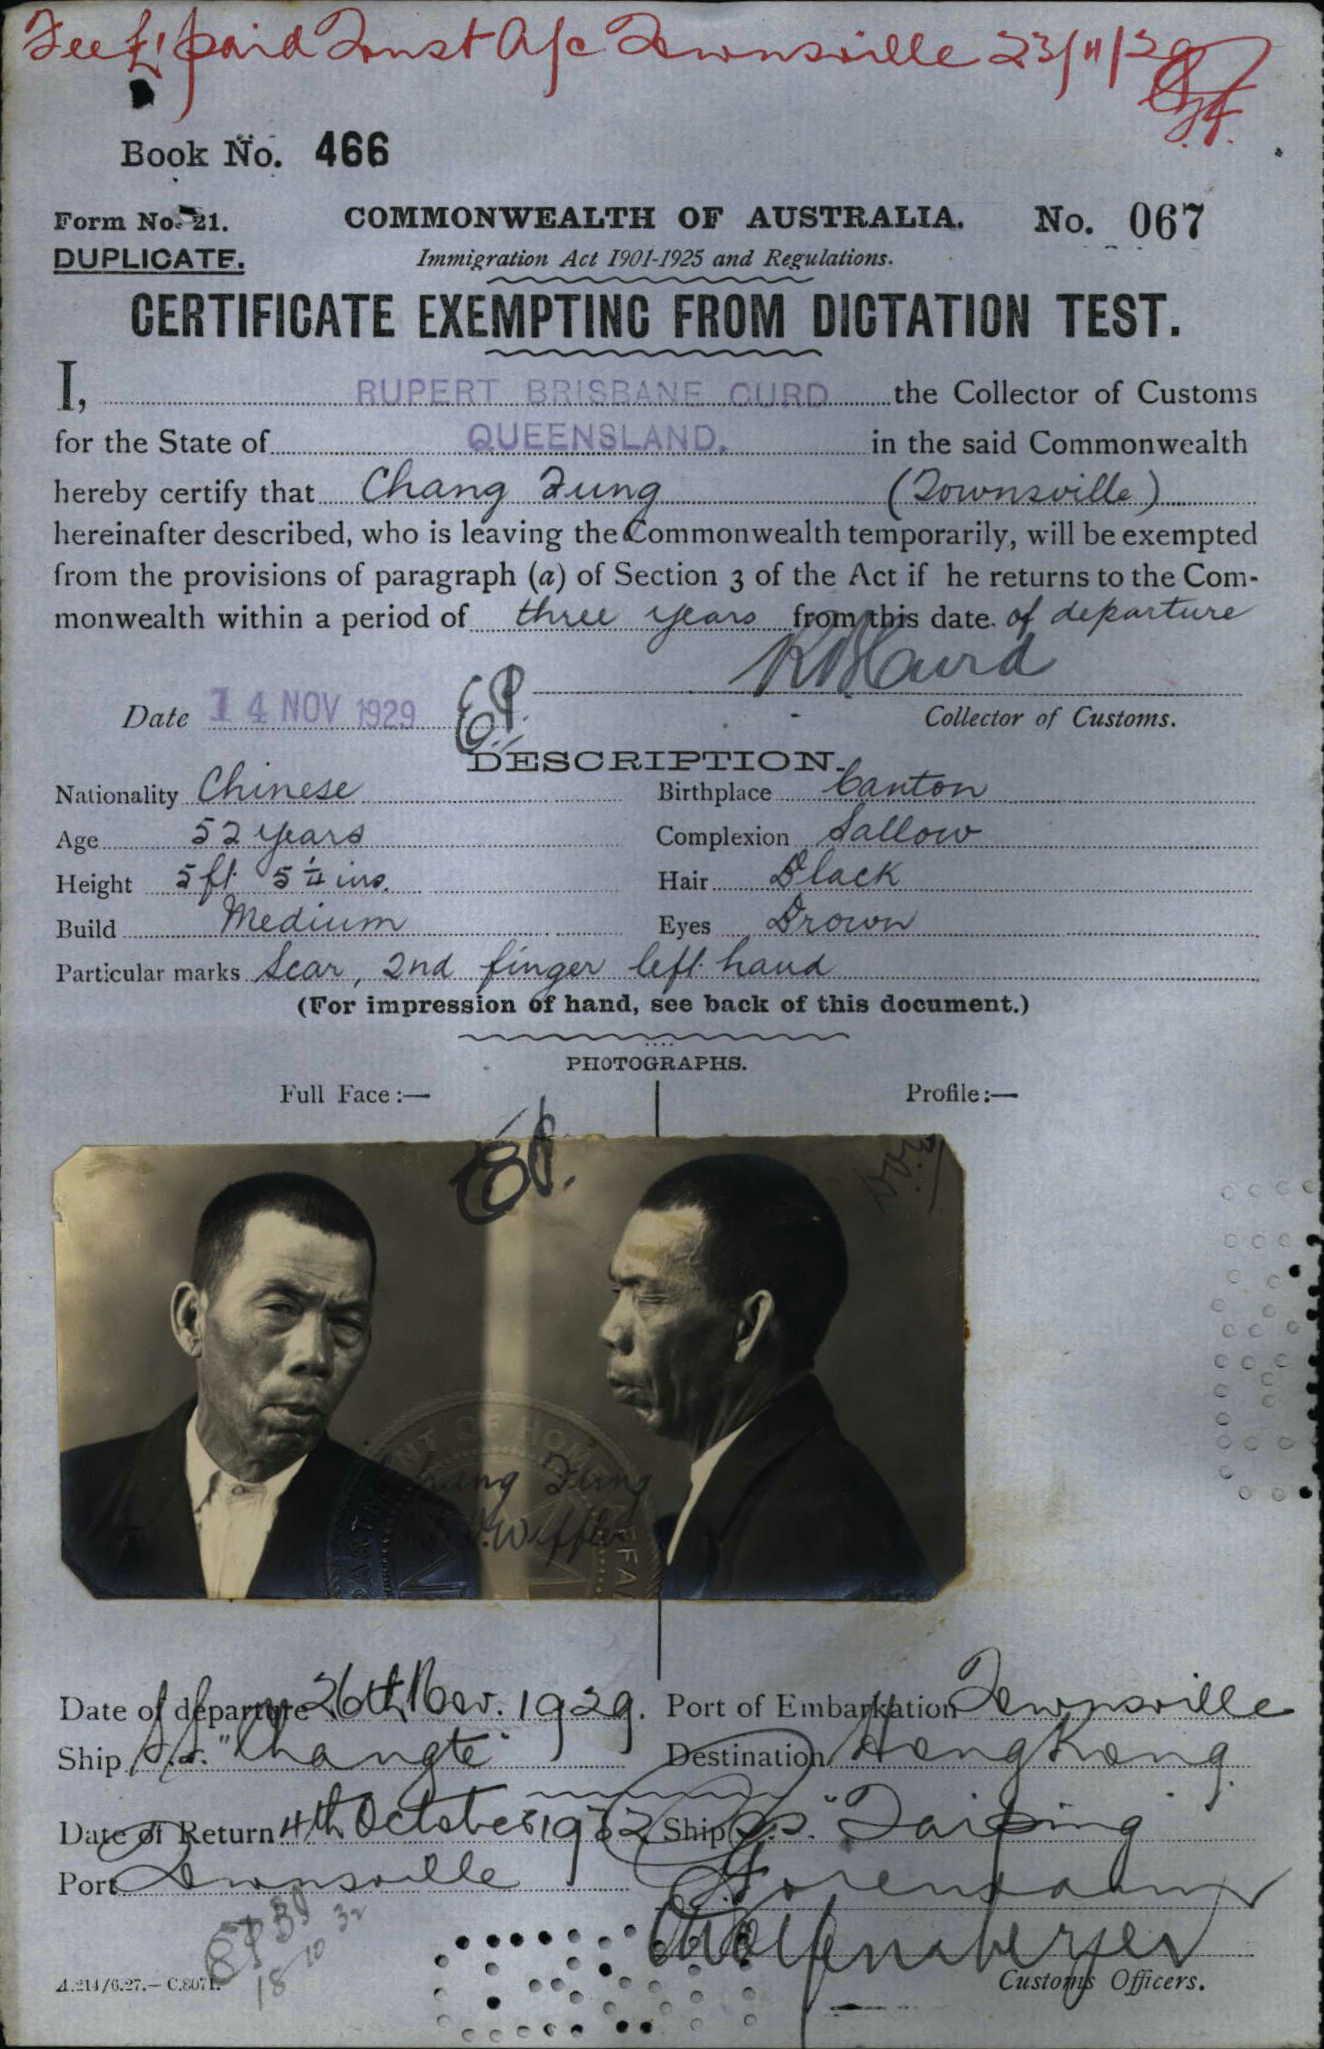 Fee £1 paid Trust A/c Townsville 23/11/29
Book No. 466
Form No. 21.
COMMONWEALTH OF AUSTRALIA.
No. 067
DUPLICATE.
Immigration Act 1901-1925 and Regulations.
CERTIFICATE EXEMPTING FROM DICTATION TEST.
I, RUPERT BRISBANE CURD the Collector of Customs
for the State of QUEENSLAND. in the said Commonwealth
hereby certify that Chang Fung (Townsville)
hereinafter described, who is leaving the Commonwealth temporarily, will be exempted
from the provisions of paragraph (a) of Section 3 of the Act if he returns to the Com-
monwealth within a period of three years from this date of departure
Date 14 NOV 1929
Collector of Customs.
DESCRIPTION.
Nationality Chinese Birthplace Canton
Age 52 years Complexion Sallow
Height 5 ft 5 1/4 ins. Hair Black
Build Medium Eyes Brown
Particular marks Scar, 2nd finger left hand
(For impression of hand, see back of this document.)
PHOTOGRAPHS.
Full Face:— Profile:—
Chang Fung
Date of departure 26th Nov. 1929. Port of Embarkation Townsville
Ship S.S. "Changte" Destination Hong Kong.
Date of Return 4th October 1932 Ship S.S. "Taiping"
Port Townsville
18 10 32
A.214/6.27.—C.8071.
Customs Officers.